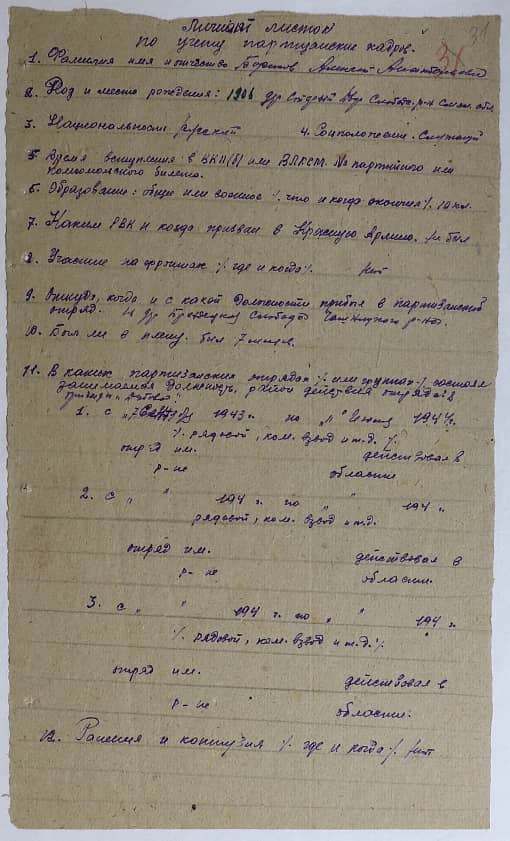 31
Личный листок
по учету партизанских кадров.
31
1. Фамилия имя и отчество Алексей
2. Год и место рождения: 1906 др.
3. Национальность русский 4. Соцположение. Служащий
5. Время вступления в ВКП(б) или ВЛКСМ. № партийного или
комсомольского билета.
6. Образование: общее или военное ⁒ что и когда окончил ⁒ 10 кл.
7. Каким РВК и когда призван в Красную Армию. не был
8. Участие на фронтах ⁒ где и когда ⁒ нет
9. Откуда, когда и с какой должности прибыл в партизанский
отряд. Слобода р-на.
10. Был ли в плену. был 7 месяцев.
11. В каких партизанских отрядах ⁒ или группах ⁒ состоял
занимаемая должность, район действия отряда в
1. с „ 1943 г. по „ " 1944 г.
⁒ рядовой, ком. взвод и т.д. ⁒
отряд им. действовал в
р-не области.
2. с „ " 194 г. по „ " 194 г.
рядовой, ком. взвод и т.д.
отряд им. действовал в
р-не области.
3. с „ " 194 г. по „ " 194 г.
⁒ рядовой, ком. взвод и т.д. ⁒
отряд им. действовал в
р-не области.
12. Ранения и контузия ⁒ где и когда ⁒ нет